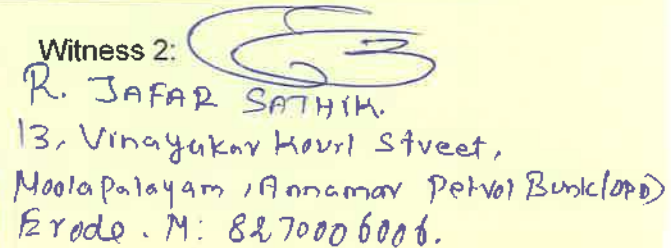 Witness 2:
R. JAFAR SATHIK.
13, Vinayakar Kovil Street,
Moolapalayam, Annamar Petrol Bunk (OPP)
Erode. M: 8270006006.